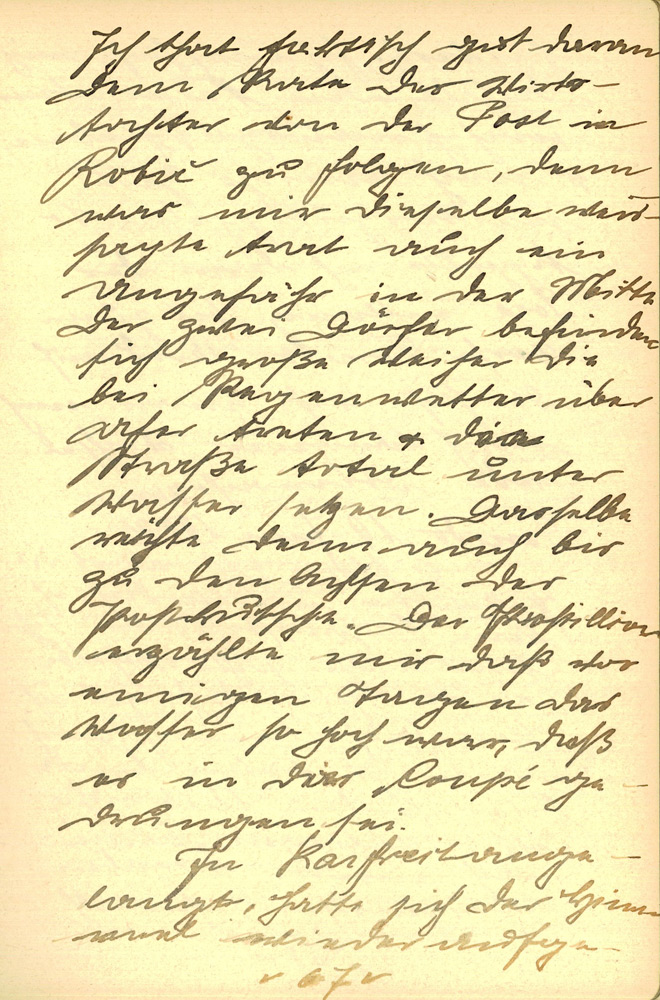 Ich that faktisch gut daran
dem Rate der Wirts-
tochter von der Post in
Robič zu folgen, denn
was mir dieselbe weis-
sagte trat auch ein
ungefähr in der Mitte
der zwei Dörfer befinden
sich große Weiher die
bei Regenwetter über
Ufer treten & die
Straße total unter
Wasser setzen. Dasselbe
reichte denn auch bis
zu den Achsen der
Postkutsche. Der Postillion
erzählte mir daß vor
einigen Tagen das
Wasser so hoch war, daß
es in das Coupé ge-
drungen sei.
In Karfreit ange-
langt, hatte sich der Him-
mel wieder aufge-
67